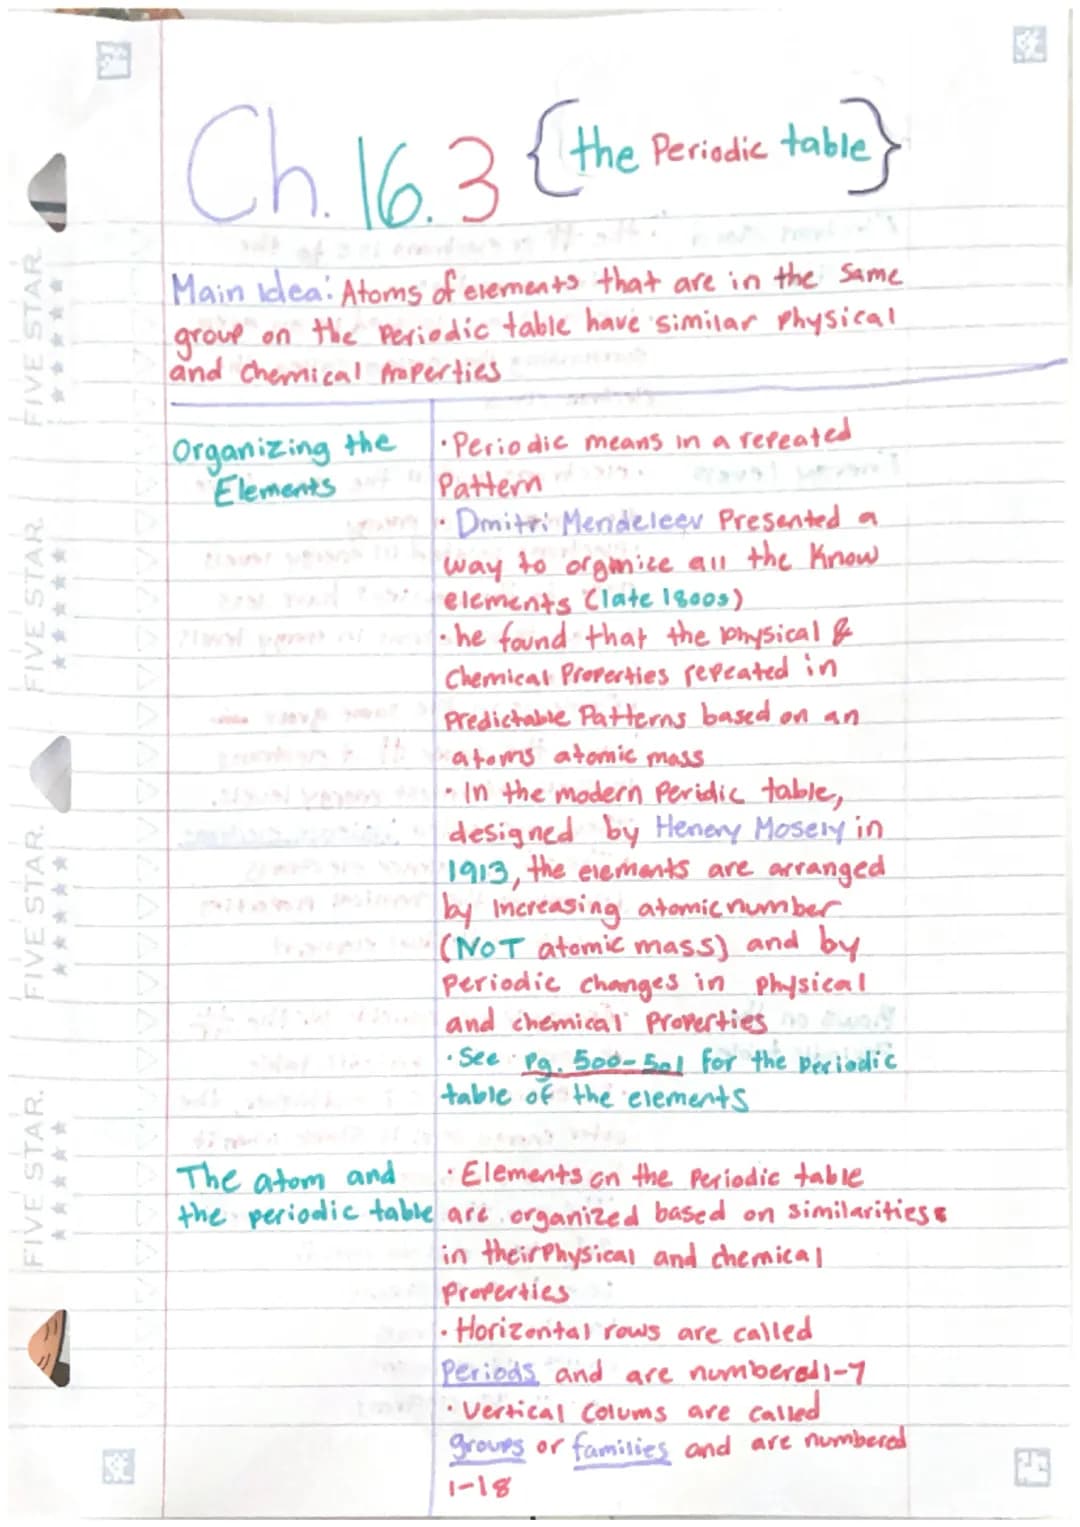 Ch. 16.3 {the Periodic table}
Main Idea: Atoms of elements that are in the same
group on the Periodic table have similar physical
and Chemical Properties
Organizing the
Elements
· Periodic means in a repeated
Pattern
· Dmitri Mendeleev Presented a
way to orgnize all the Know
elements (late 1800s)
· he found that the physical &
Chemical Properties repeated in
Predictable Patterns based on an
atoms atomic mass
· In the modern Peridic table,
designed by Henery Mosely in
1913, the elements are arranged
by Increasing atomic number
(NOT atomic mass) and by
Periodic changes in physical
and chemical Properties
· See Pg. 500-501 for the periodic
table of the elements
The atom and
the periodic table
· Elements on the Periodic table
are organized based on similarities
in their Physical and chemical
Properties
· Horizontal rows are called
Periods and are numbered 1-7
· Vertical Colums are called
groups or families and are numbered
1-18
FIVE STAR.
FIVE STAR.
FIVE STAR.
FIVE STAR.